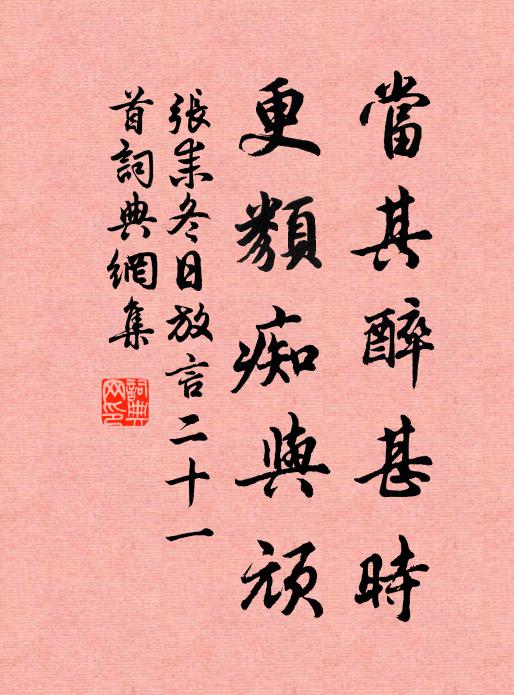 當其醉甚時
更類痴與頑
張耒冬日放言二十一
首詞典網集
詞典
网印